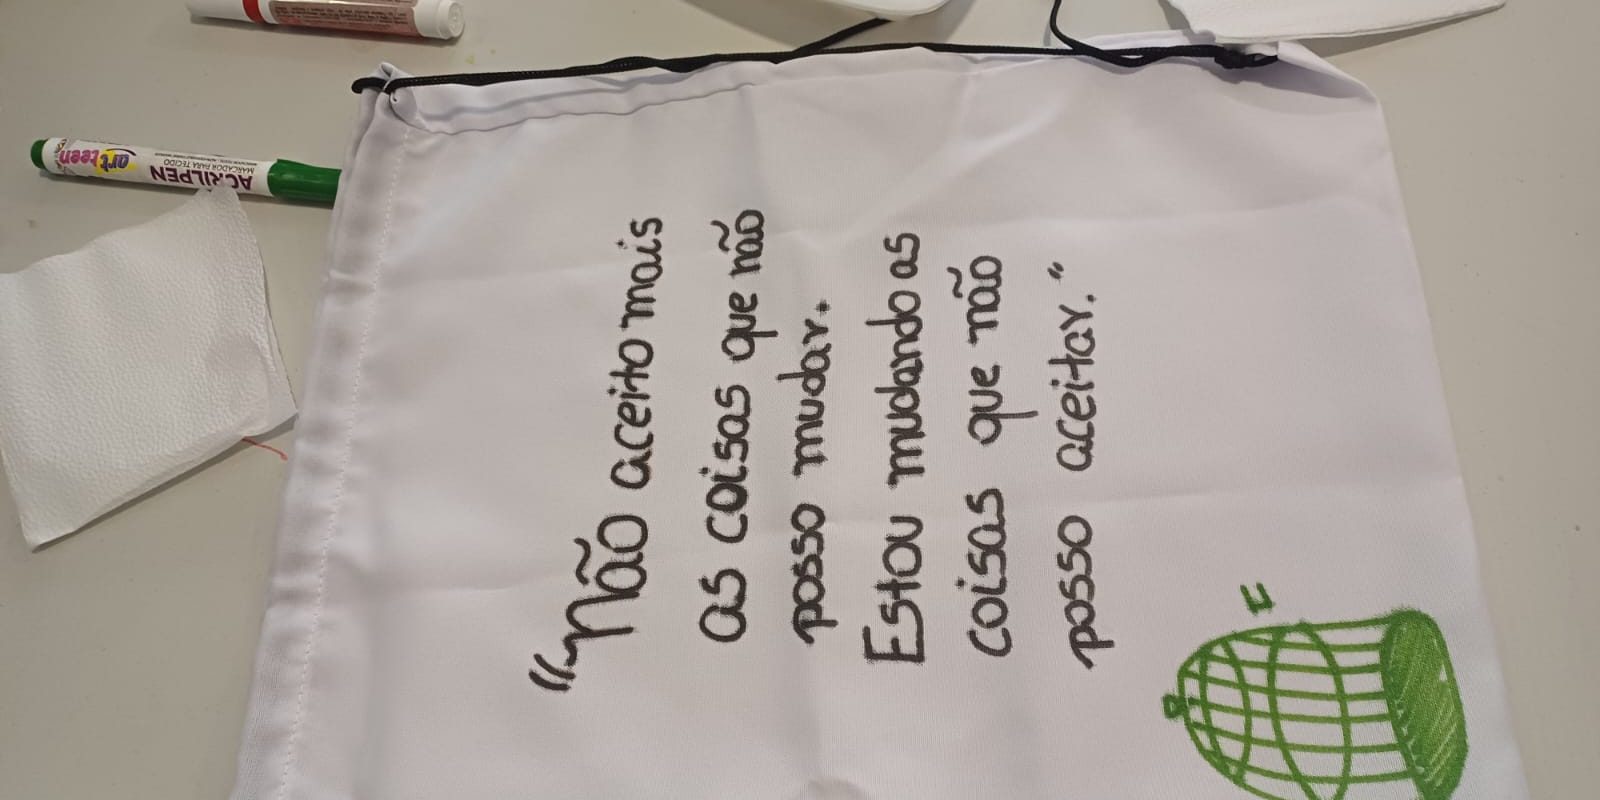 "Não aceito mais
as coisas que não
posso mudar.
Estou mudando as
coisas que não
posso aceitar."
ACRILPEN
MARCADOR PARA TECIDO
art teen